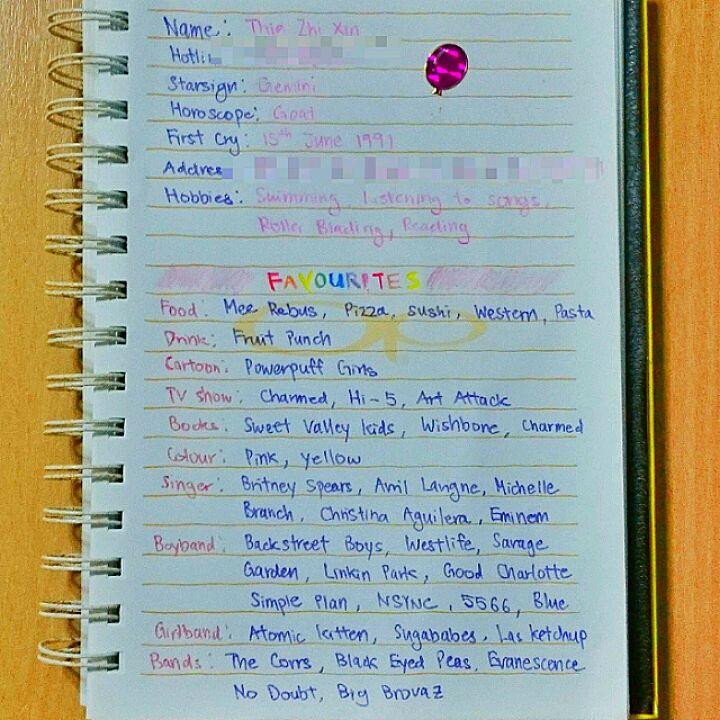 Name: Thia Zhi Xin
Hotli
Starsign: Gemini
Horoscope: Goat
First Cry: 15th June 1991
Addres
Hobbies: Swimming, Listening to songs,
Roller Blading, Reading
FAVOURITES
Food: Mee Rebus, Pizza, sushi, Western, Pasta
Drink: Fruit Punch
Cartoon: Powerpuff Girls
TV show: Charmed, Hi-5, Art Attack
Books: Sweet Valley kids, Wishbone, Charmed
Colour: Pink, yellow
Singer: Britney Spears, Avril Lavigne, Michelle
Branch, Christina Aguilera, Eminem
Boyband: Backstreet Boys, Westlife, Savage
Garden, Linkin Park, Good Charlotte
Simple Plan, NSYNC, 5566, Blue
Girlband: Atomic kitten, Sugababes, Las ketchup
Bands: The Corrs, Black Eyed Peas, Evanescence
No Doubt, Big Brovaz